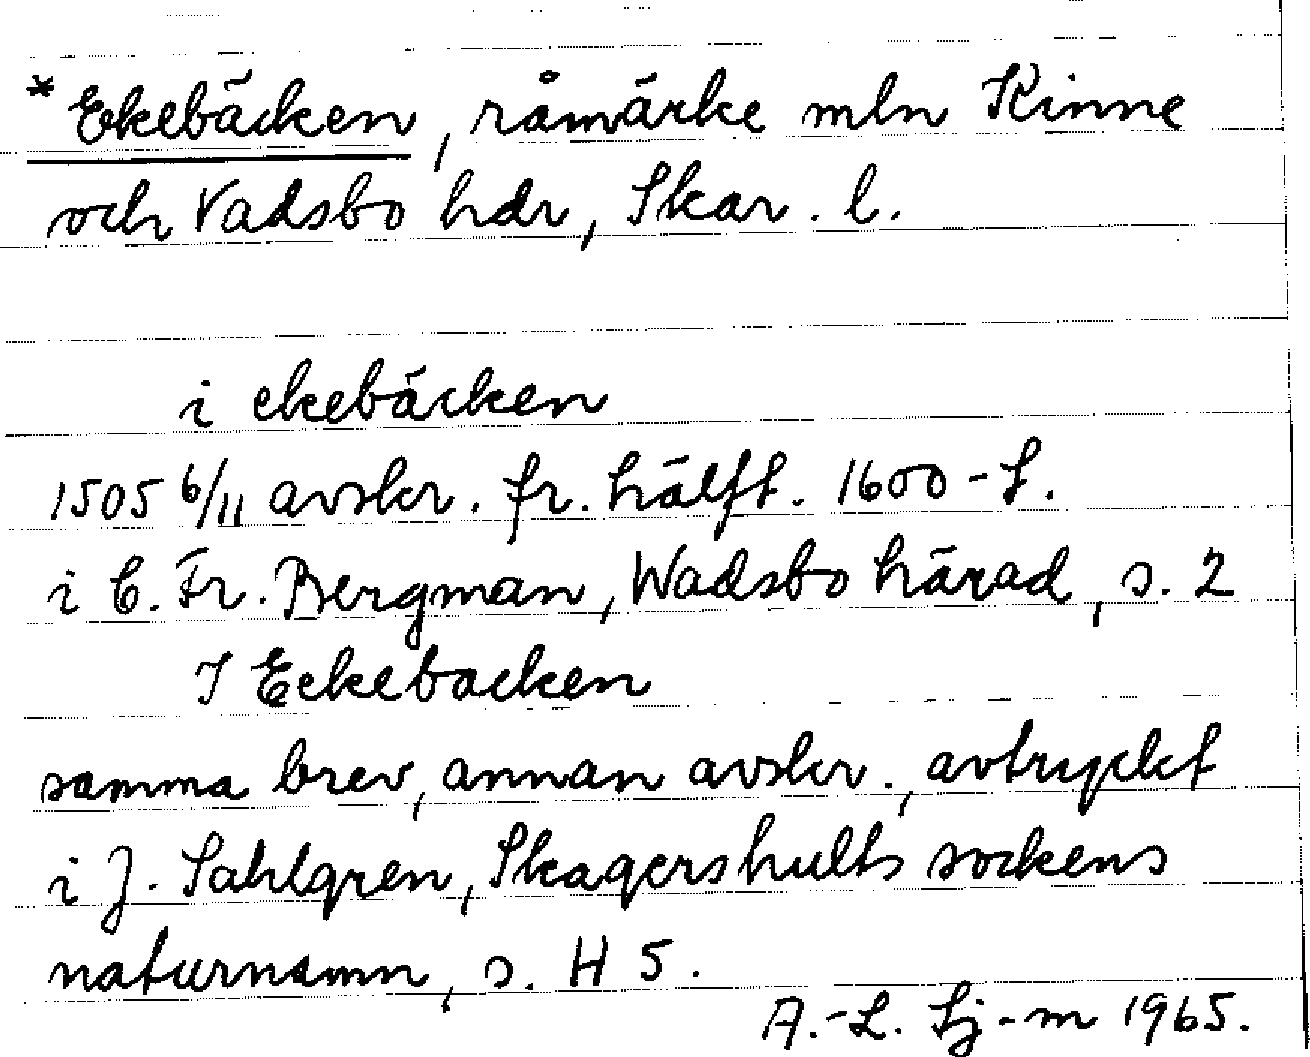 * Ekebäcken, råmärke mln Kinne
och Vadsbo hdr, Skar. l.
i ekebäcken
1505 6/11 avskr. fr. hälft. 1600-t.
i C. Fr. Bergman, Wadsbo härad, s. 2
I Eckebacken
samma brev, annan avskr., avtryckt
i J. Sahlgren, Skagershults sockens
naturnamn, s. H 5.
A.-L. Sj-m 1965.